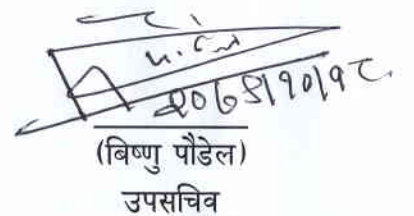 २०७५।१०।१८
(बिष्णु पौडेल)
उपसचिव